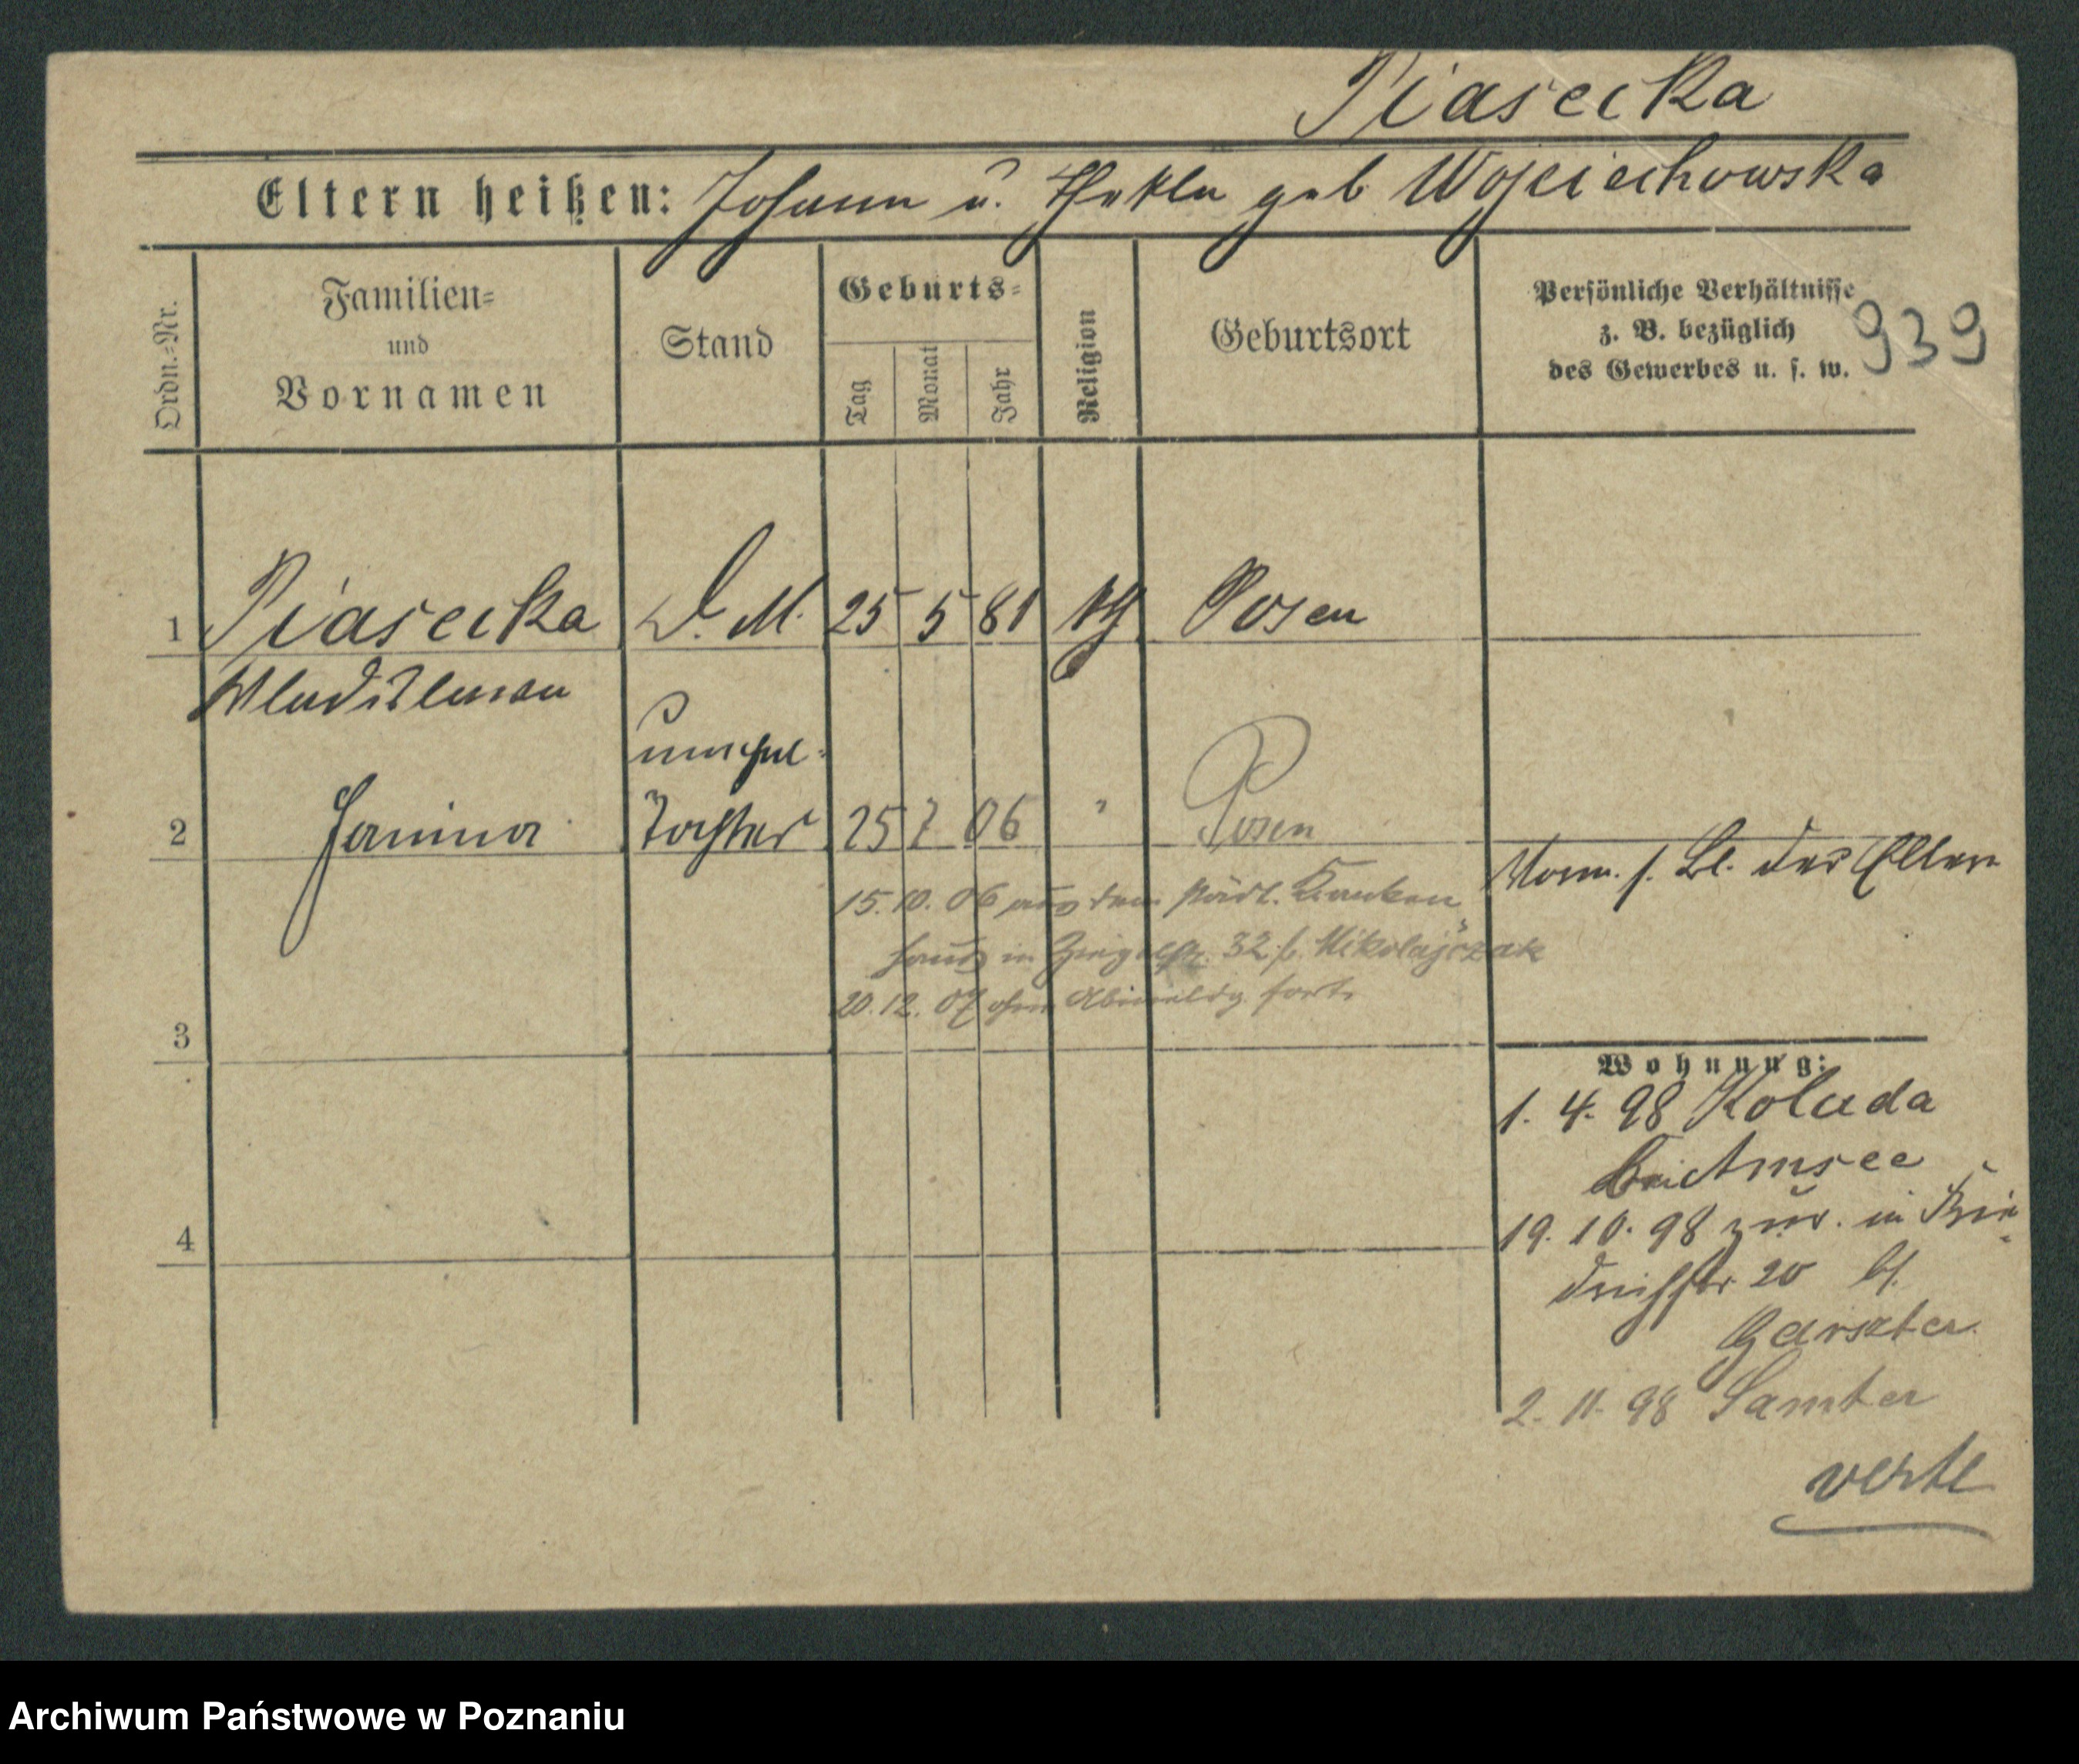 Piasecka
Eltern heißen: Johann u. Thekla geb Wojciechowska
Ordn.=Nr.
Familien=
und
Vornamen
Stand
Geburts=
Tag
Monat
Jahr
Religion
Geburtsort
Persönliche Verhältnisse
z. B. bezüglich
des Gewerbes u. s. w.
939
1 Piasecka D. M. 25 5 81 kth Posen
Wladislawa
unehel.
2 Janina Tochter 25 7 06 " Posen
Vorm. s. Bl. der Eltern
15. 10. 06 aus dem städt. Kranken
haus in Ziegelstr. 32 b. Mikolajczak
20. 12. 07 ohne Abmeldg. fort.
3
Wohnung:
1. 4. 98 Koluda
bei Amsee
19. 10. 98 zur. in
20 b.
4
2. 11. 98 Samter
verte
Archiwum Państwowe w Poznaniu